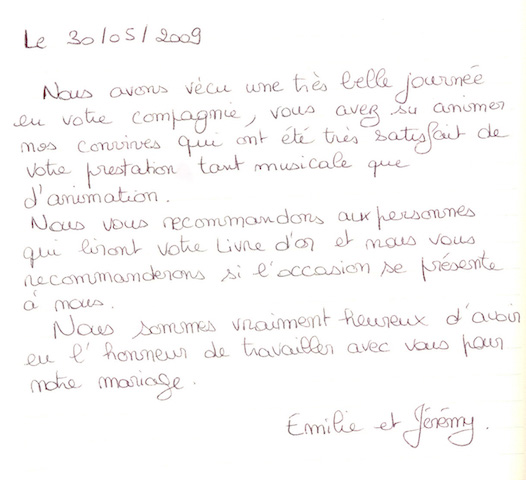 Le 30/05/2009
Nous avons vécu une très belle journée
en votre compagnie, vous avez su animer
nos convives qui ont été très satisfait de
votre prestation tant musicale que
d'animation.
Nous vous recommandons aux personnes
qui liront votre Livre d'or et nous vous
recommanderons si l'occasion se présente
à nous.
Nous sommes vraiment heureux d'avoir
eu l'honneur de travailler avec vous pour
notre mariage.
Emilie et Jérémy.